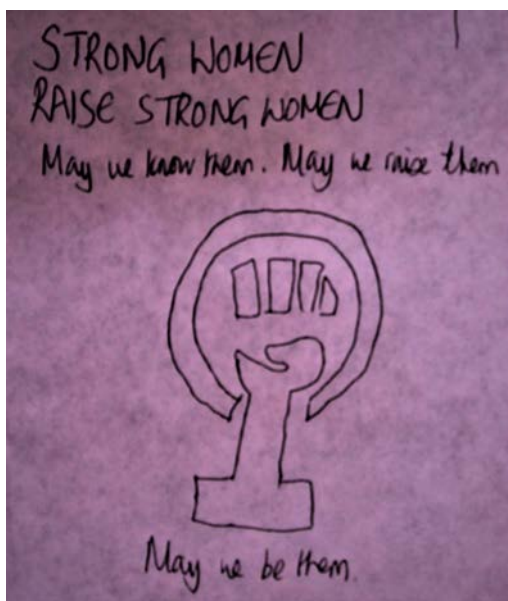 STRONG WOMEN
RAISE STRONG WOMEN
May we know them. May we raise them
May we be them.